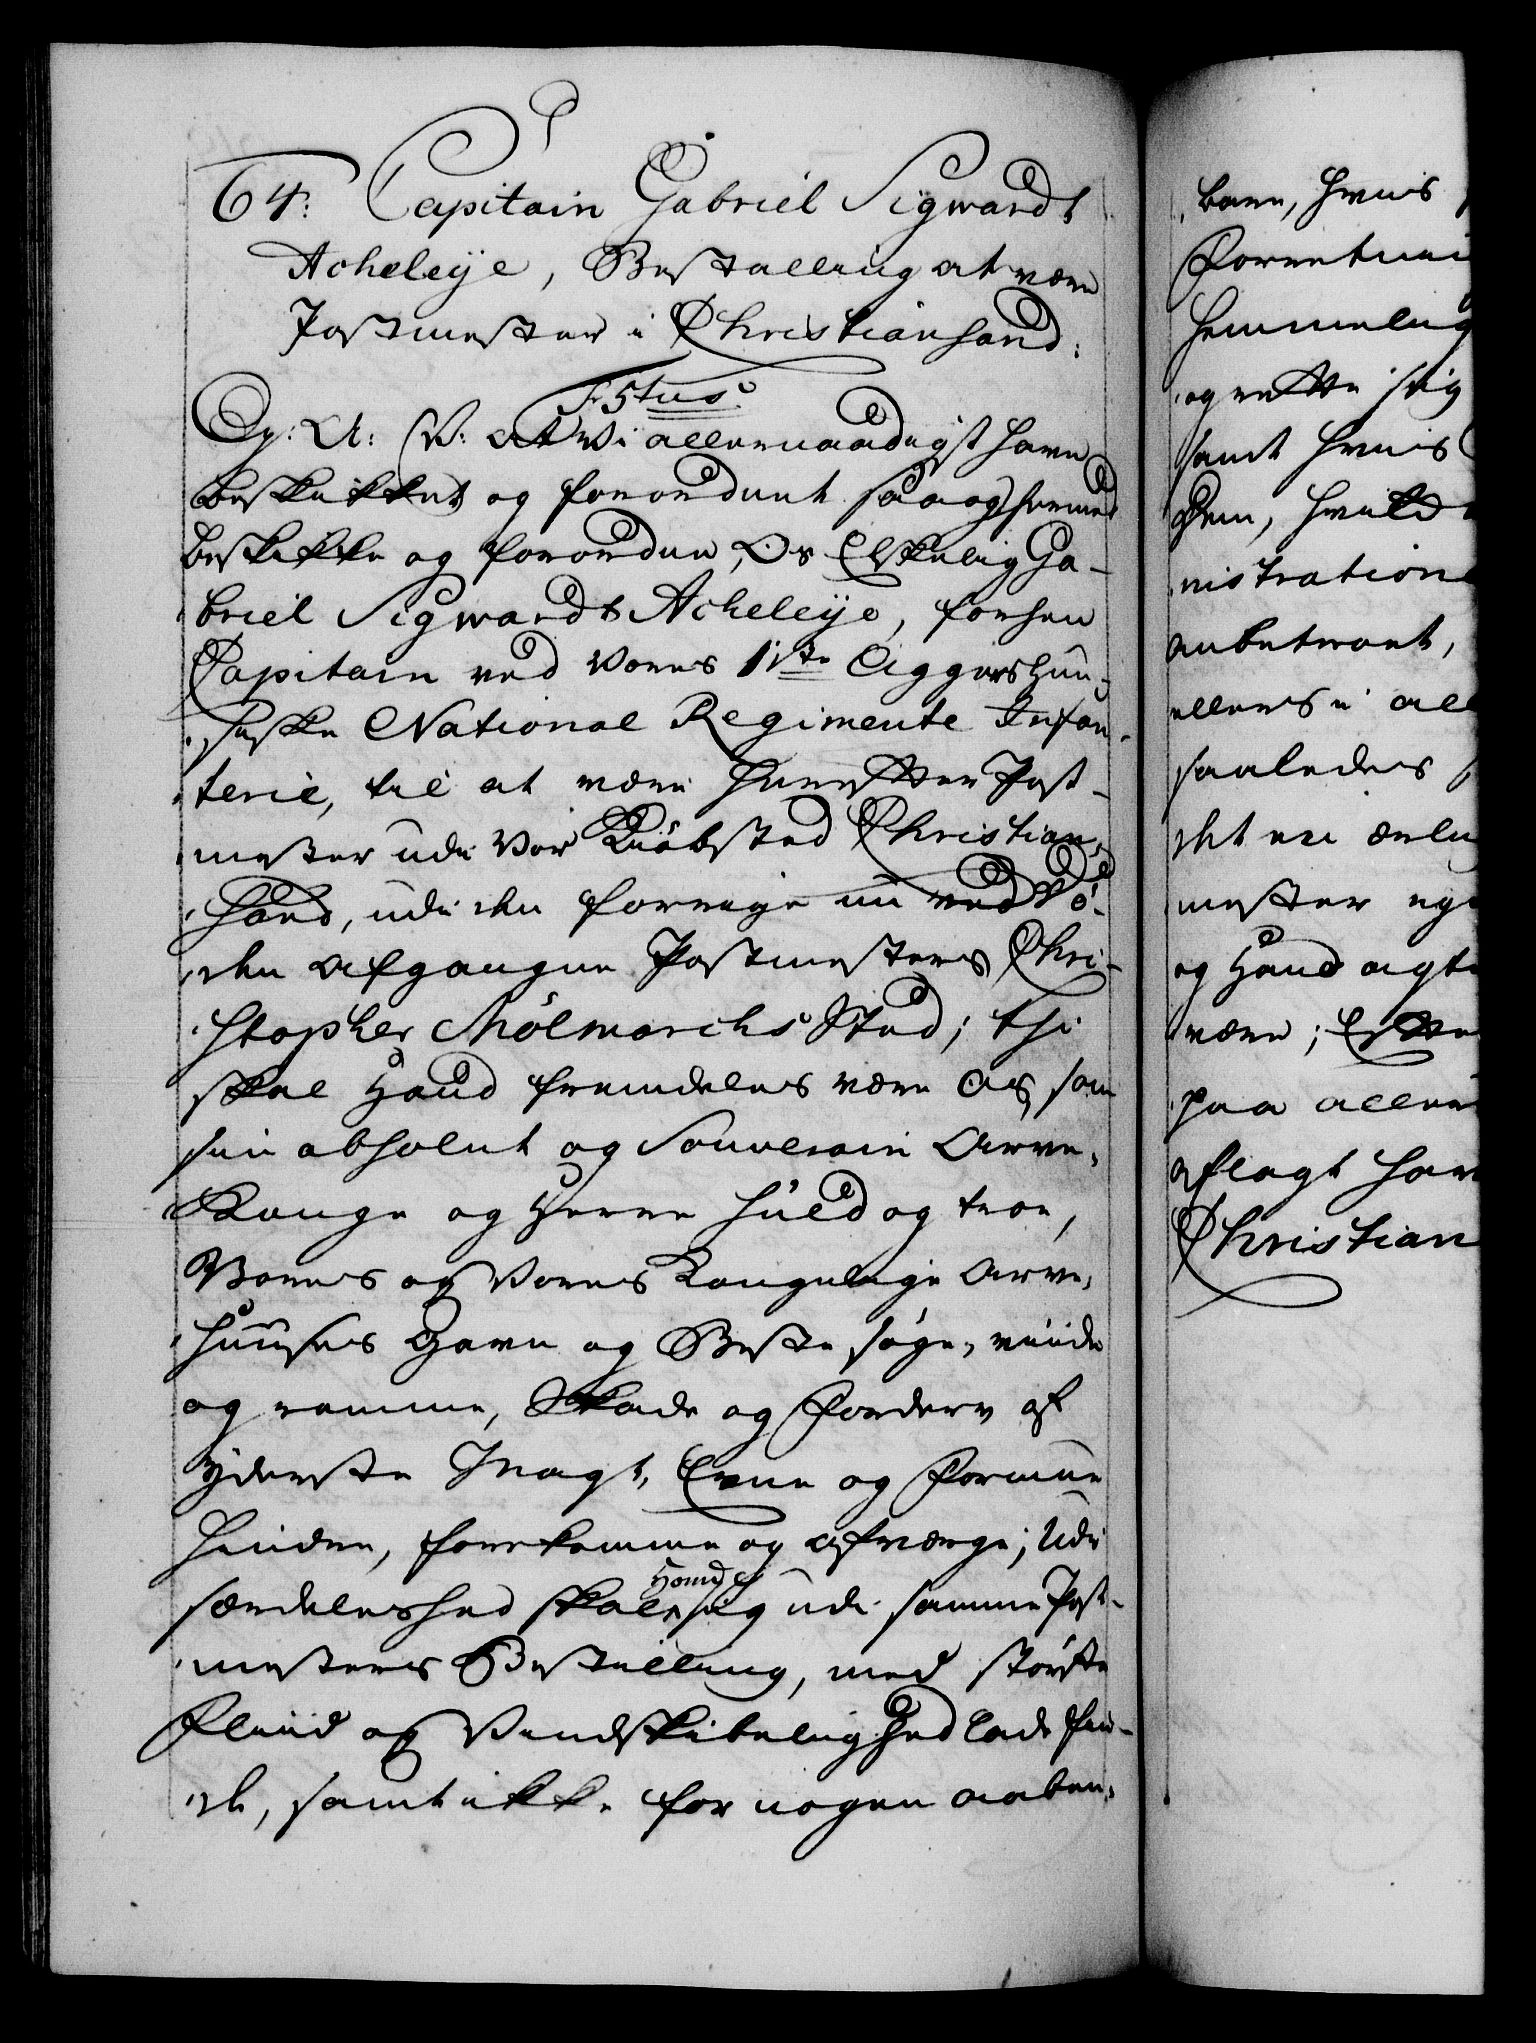 64: Capitain Gabriel Sigwardt
Acheleÿe, Bestalling at være
Postmester i Christiansand:
F. 5tus.
Gj: A: V: at Vi allernaadigst have
beskikket og forordnet saa og hermed
beskikke og forordne, Os Elskelig Ga-
briel Sigwardt Acheleÿe, forhen
Capitain ved Vores 1ste Aggershuu-
siske National Regimente Infan-
terie, til at være herefter Post-
mester udi Vor Kiøbsted Christian-
sand, udi den forrige nu ved Dö-
den afgangne Postmesters Chri-
stopher Mölmarchs Sted; thi
skal Hand fremdeles være Os, som
sin absolut og Souverain Arve-
Konge og Herre huld og troe,
Vores og Vores Kongelige Arve-
Huuses Gavn og Beste søge, viide
og ramme, Skade og Forderv af
yderste Magt, Evne og Formue
hindre, forekomme og afværge; Udi
særdeleshed skal Hand sig udi samme Post-
mesters Bestilling, med største
Fliid og Vindskibelighed lade fin-
de, samt ikke for nogen aaben-
bare, hvis
Forretni
hemmelig
og rette sig
samt hvis
Dem, hvild
nistration
anbetroet,
ellers i all
saaledes
det en ærlig
mester eg
og Hand agte
være; Efter
paa aller
aflagt har
Christian